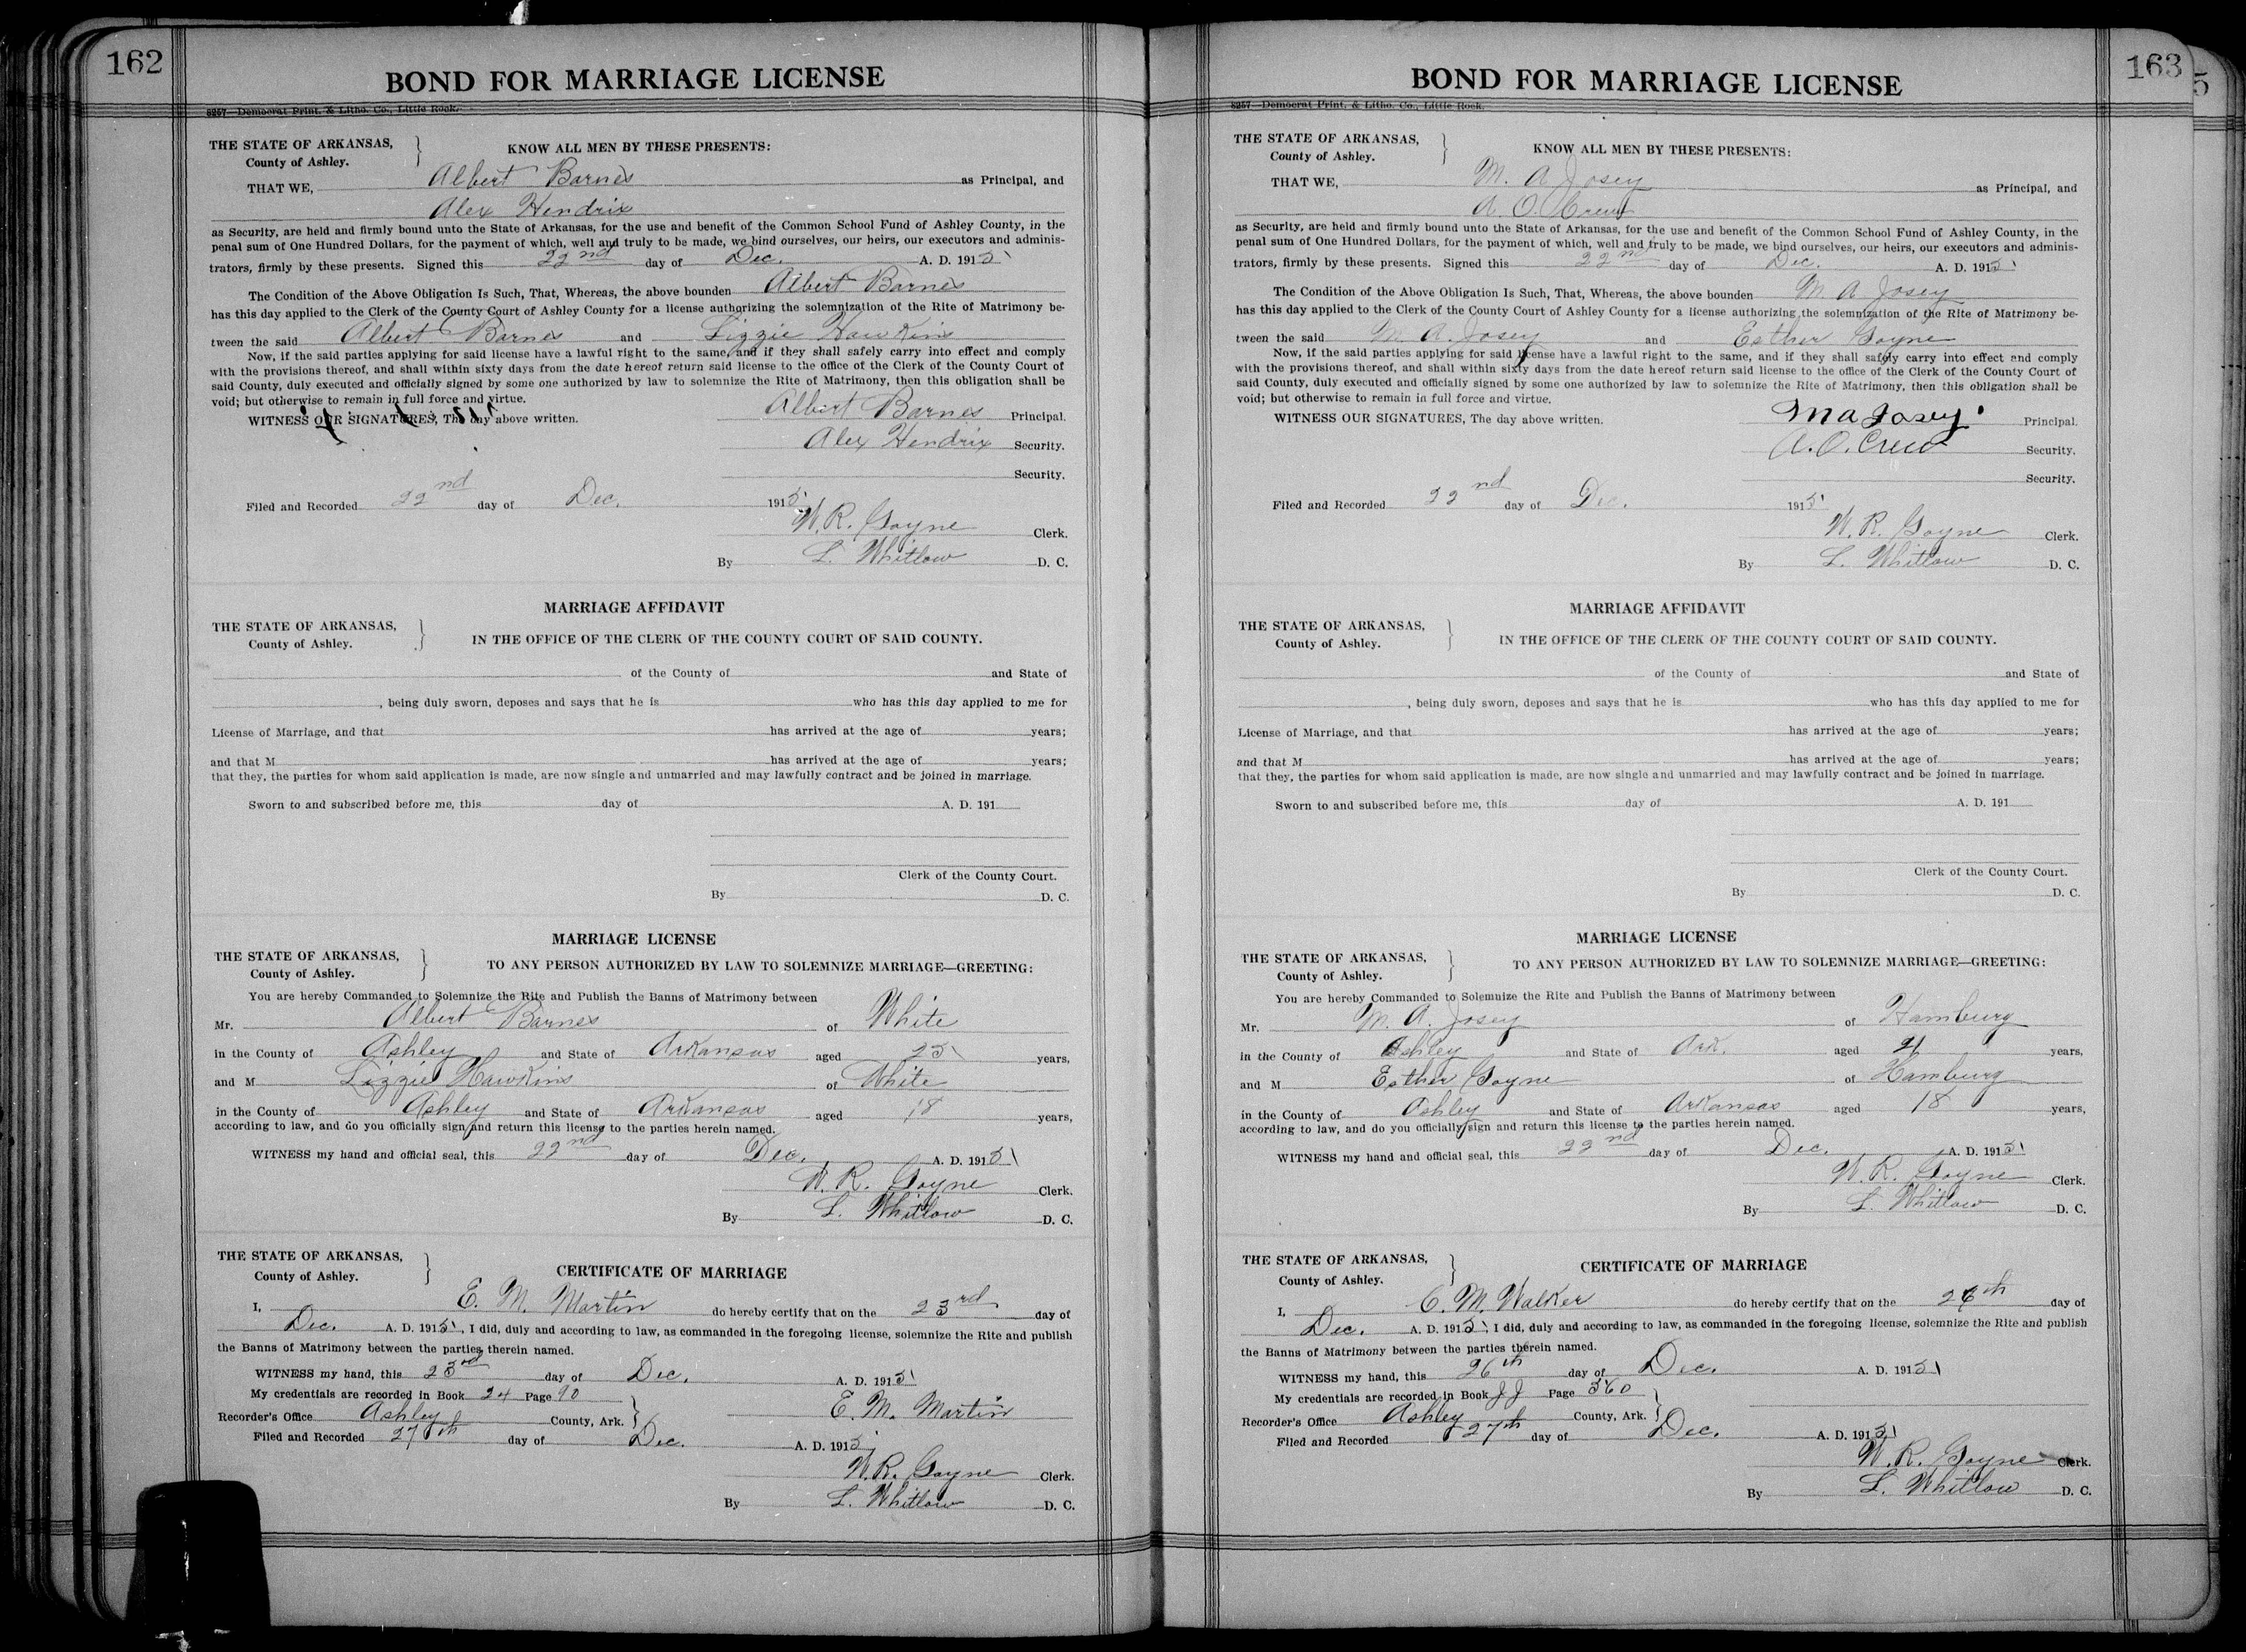 162
BOND FOR MARRIAGE LICENSE
8257—Democrat Print. & Litho. Co., Little Rock.
THE STATE OF ARKANSAS,
County of Ashley.
KNOW ALL MEN BY THESE PRESENTS:
THAT WE, Albert Barnes as Principal, and
Alex Hendrix
as Security, are held and firmly bound unto the State of Arkansas, for the use and benefit of the Common School Fund of Ashley County, in the
penal sum of One Hundred Dollars, for the payment of which, well and truly to be made, we bind ourselves, our heirs, our executors and adminis-
trators, firmly by these presents. Signed this 22nd day of Dec. A. D. 1915
The Condition of the Above Obligation Is Such, That, Whereas, the above bounden Albert Barnes
has this day applied to the Clerk of the County Court of Ashley County for a license authorizing the solemnization of the Rite of Matrimony be-
tween the said Albert Barnes and Lizzie Hawkins
Now, if the said parties applying for said license have a lawful right to the same, and if they shall safely carry into effect and comply
with the provisions thereof, and shall within sixty days from the date hereof return said license to the office of the Clerk of the County Court of
said County, duly executed and officially signed by some one authorized by law to solemnize the Rite of Matrimony, then this obligation shall be
void; but otherwise to remain in full force and virtue.
WITNESS OUR SIGNATURES, The day above written.
Albert Barnes Principal.
Alex Hendrix Security.
Security.
Filed and Recorded 22nd day of Dec. 1915
W. R. Goyne Clerk.
By L. Whitlow D. C.
MARRIAGE AFFIDAVIT
THE STATE OF ARKANSAS,
County of Ashley.
IN THE OFFICE OF THE CLERK OF THE COUNTY COURT OF SAID COUNTY.
of the County of and State of
, being duly sworn, deposes and says that he is who has this day applied to me for
License of Marriage, and that has arrived at the age of years;
and that M has arrived at the age of years;
that they, the parties for whom said application is made, are now single and unmarried and may lawfully contract and be joined in marriage.
Sworn to and subscribed before me, this day of A. D. 191
Clerk of the County Court.
By D. C.
MARRIAGE LICENSE
THE STATE OF ARKANSAS,
County of Ashley.
TO ANY PERSON AUTHORIZED BY LAW TO SOLEMNIZE MARRIAGE—GREETING:
You are hereby Commanded to Solemnize the Rite and Publish the Banns of Matrimony between
Mr. Albert Barnes of White
in the County of Ashley and State of Arkansas aged 25 years,
and M Lizzie Hawkins of White
in the County of Ashley and State of Arkansas aged 18 years,
according to law, and do you officially sign and return this license to the parties herein named.
WITNESS my hand and official seal, this 22nd day of Dec. A. D. 1915
W. R. Goyne Clerk.
By L. Whitlow D. C.
THE STATE OF ARKANSAS,
County of Ashley.
CERTIFICATE OF MARRIAGE
I, E. M. Martin do hereby certify that on the 23rd day of
Dec. A. D. 1915, I did, duly and according to law, as commanded in the foregoing license, solemnize the Rite and publish
the Banns of Matrimony between the parties therein named.
WITNESS my hand, this 23rd day of Dec. A. D. 1915
My credentials are recorded in Book 24 Page 90
Recorder's Office Ashley County, Ark.
E. M. Martin
Filed and Recorded 27th day of Dec. A. D. 1915
W. R. Goyne Clerk.
By L. Whitlow D. C.
163
5
BOND FOR MARRIAGE LICENSE
8257—Democrat Print. & Litho. Co., Little Rock.
THE STATE OF ARKANSAS,
County of Ashley.
KNOW ALL MEN BY THESE PRESENTS:
THAT WE, M. A. Josey as Principal, and
A. O. Crew
as Security, are held and firmly bound unto the State of Arkansas, for the use and benefit of the Common School Fund of Ashley County, in the
penal sum of One Hundred Dollars, for the payment of which, well and truly to be made, we bind ourselves, our heirs, our executors and adminis-
trators, firmly by these presents. Signed this 22nd day of Dec. A. D. 1915
The Condition of the Above Obligation Is Such, That, Whereas, the above bounden M. A. Josey
has this day applied to the Clerk of the County Court of Ashley County for a license authorizing the solemnization of the Rite of Matrimony be-
tween the said M. A. Josey and Esther Goyne
Now, if the said parties applying for said license have a lawful right to the same, and if they shall safely carry into effect and comply
with the provisions thereof, and shall within sixty days from the date hereof return said license to the office of the Clerk of the County Court of
said County, duly executed and officially signed by some one authorized by law to solemnize the Rite of Matrimony, then this obligation shall be
void; but otherwise to remain in full force and virtue.
WITNESS OUR SIGNATURES, The day above written.
M A Josey Principal.
A. O. Crew Security.
Security.
Filed and Recorded 22nd day of Dec. 1915
W. R. Goyne Clerk.
By L. Whitlow D. C.
MARRIAGE AFFIDAVIT
THE STATE OF ARKANSAS,
County of Ashley.
IN THE OFFICE OF THE CLERK OF THE COUNTY COURT OF SAID COUNTY.
of the County of and State of
, being duly sworn, deposes and says that he is who has this day applied to me for
License of Marriage, and that has arrived at the age of years;
and that M has arrived at the age of years;
that they, the parties for whom said application is made, are now single and unmarried and may lawfully contract and be joined in marriage.
Sworn to and subscribed before me, this day of A. D. 191
Clerk of the County Court.
By D. C.
MARRIAGE LICENSE
THE STATE OF ARKANSAS,
County of Ashley.
TO ANY PERSON AUTHORIZED BY LAW TO SOLEMNIZE MARRIAGE—GREETING:
You are hereby Commanded to Solemnize the Rite and Publish the Banns of Matrimony between
Mr. M. A. Josey of Hamburg
in the County of Ashley and State of Ark. aged 21 years,
and M Esther Goyne of Hamburg
in the County of Ashley and State of Arkansas aged 18 years,
according to law, and do you officially sign and return this license to the parties herein named.
WITNESS my hand and official seal, this 22nd day of Dec. A. D. 1915
W. R. Goyne Clerk.
By L. Whitlow D. C.
THE STATE OF ARKANSAS,
County of Ashley.
CERTIFICATE OF MARRIAGE
I, C. M. Walker do hereby certify that on the 26th day of
Dec. A. D. 1915, I did, duly and according to law, as commanded in the foregoing license, solemnize the Rite and publish
the Banns of Matrimony between the parties therein named.
WITNESS my hand, this 26th day of Dec. A. D. 1915
My credentials are recorded in Book JJ Page 360
Recorder's Office Ashley County, Ark.
Filed and Recorded 27th day of Dec. A. D. 1915
W. R. Goyne Clerk.
By L. Whitlow D. C.